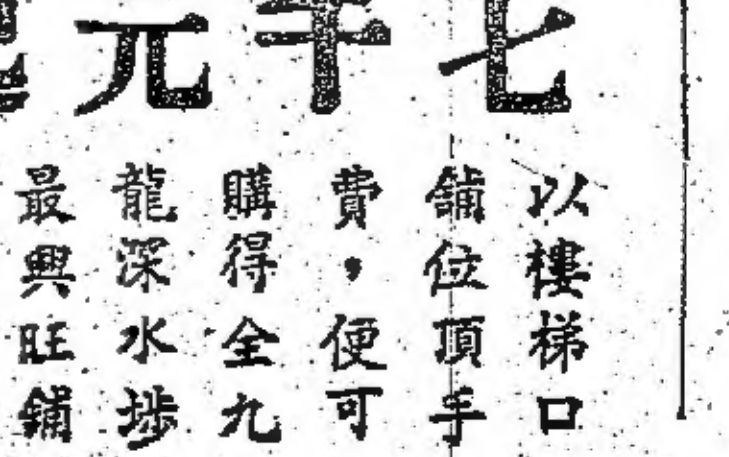 七千元
以樓梯口
舖位頂手
費，便可
購得全九
龍深水埗
最興旺舖